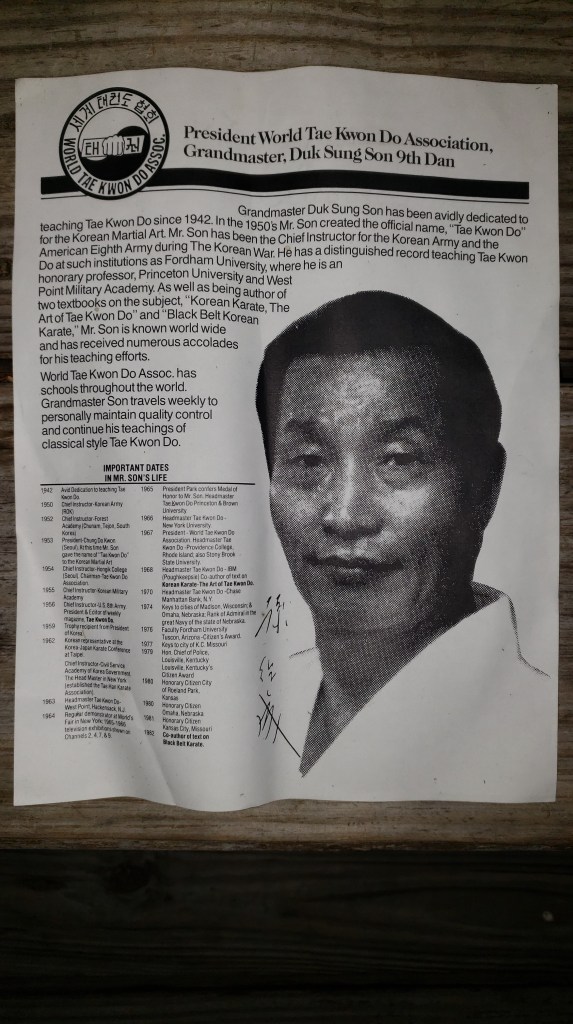 세계태권도협회
태권
WORLD TAE KWON DO ASSOC.
President World Tae Kwon Do Association,
Grandmaster, Duk Sung Son 9th Dan
Grandmaster Duk Sung Son has been avidly dedicated to
teaching Tae Kwon Do since 1942. In the 1950's Mr. Son created the official name, "Tae Kwon Do"
for the Korean Martial Art. Mr. Son has been the Chief Instructor for the Korean Army and the
American Eighth Army during The Korean War. He has a distinguished record teaching Tae Kwon
Do at such institutions as Fordham University, where he is an
honorary professor, Princeton University and West
Point Military Academy. As well as being author of
two textbooks on the subject, "Korean Karate, The
Art of Tae Kwon Do" and "Black Belt Korean
Karate," Mr. Son is known world wide
and has received numerous accolades
for his teaching efforts.
World Tae Kwon Do Assoc. has
schools throughout the world.
Grandmaster Son travels weekly to
personally maintain quality control
and continue his teachings of
classical style Tae Kwon Do.
IMPORTANT DATES
IN MR. SON'S LIFE
1942 Avid Dedication to teaching Tae
Kwon Do
1950 Chief Instructor-Korean Army
(ROK)
1952 Chief Instructor-Forest
Academy (Chonam, Tejon, South
Korea)
1953 President-Chung Do Kwon
(Seoul). At this time Mr. Son
gave the name of "Tae Kwon Do"
to the Korean Martial Art
1954 Chief Instructor-Hongik College
(Seoul), Chairman-Tae Kwon Do
Association.
1955 Chief Instructor-Korean Military
Academy
1956 Chief Instructor-U.S. 8th Army
President & Editor of weekly
magazine, Tae Kwon Do.
1959 Trophy recipient from President
of Korea
1962 Korean representative at the
Korea-Japan Karate Conference
at Taipei.
Chief Instructor-Civil Service
Academy of Korea Government
The Head Master in New York
(established the Tae Kwon Karate
Association).
1963 Headmaster Tae Kwon Do-
West Point, Hackensack, N.J.
1964 Regular demonstrator at World's
Fair in New York; 1965-1966
television exhibitions shown on
Channels 2, 4, 7, & 9.
1965 President Park confers Medal of
Honor to Mr. Son. Headmaster
Tae Kwon Do-Princeton & Brown
University
1966 Headmaster Tae Kwon Do -
New York University.
1967 President - World Tae Kwon Do
Association. Headmaster Tae
Kwon Do -Providence College,
Rhode Island; also Stony Brook
State University.
1968 Headmaster Tae Kwon Do - IBM
(Poughkeepsie) Co-author of text on
Korean Karate-The Art of Tae Kwon Do.
1970 Headmaster Tae Kwon Do -Chase
Manhattan Bank, N.Y.
1974 Keys to cities of Madison, Wisconsin; &
Omaha, Nebraska; Rank of Admiral in the
great Navy of the state of Nebraska.
1976 Faculty Fordham University
Tuscon, Arizona -Citizen's Award.
1977 Keys to city of K.C. Missouri
1979 Hon. Chief of Police,
Louisville, Kentucky
Louisville, Kentucky's
Citizen Award
1980 Honorary Citizen City
of Roeland Park,
Kansas
1980 Honorary Citizen
Omaha, Nebraska
1981 Honorary Citizen
Kansas City, Missouri
1982 Co-author of text on
Black Belt Karate.